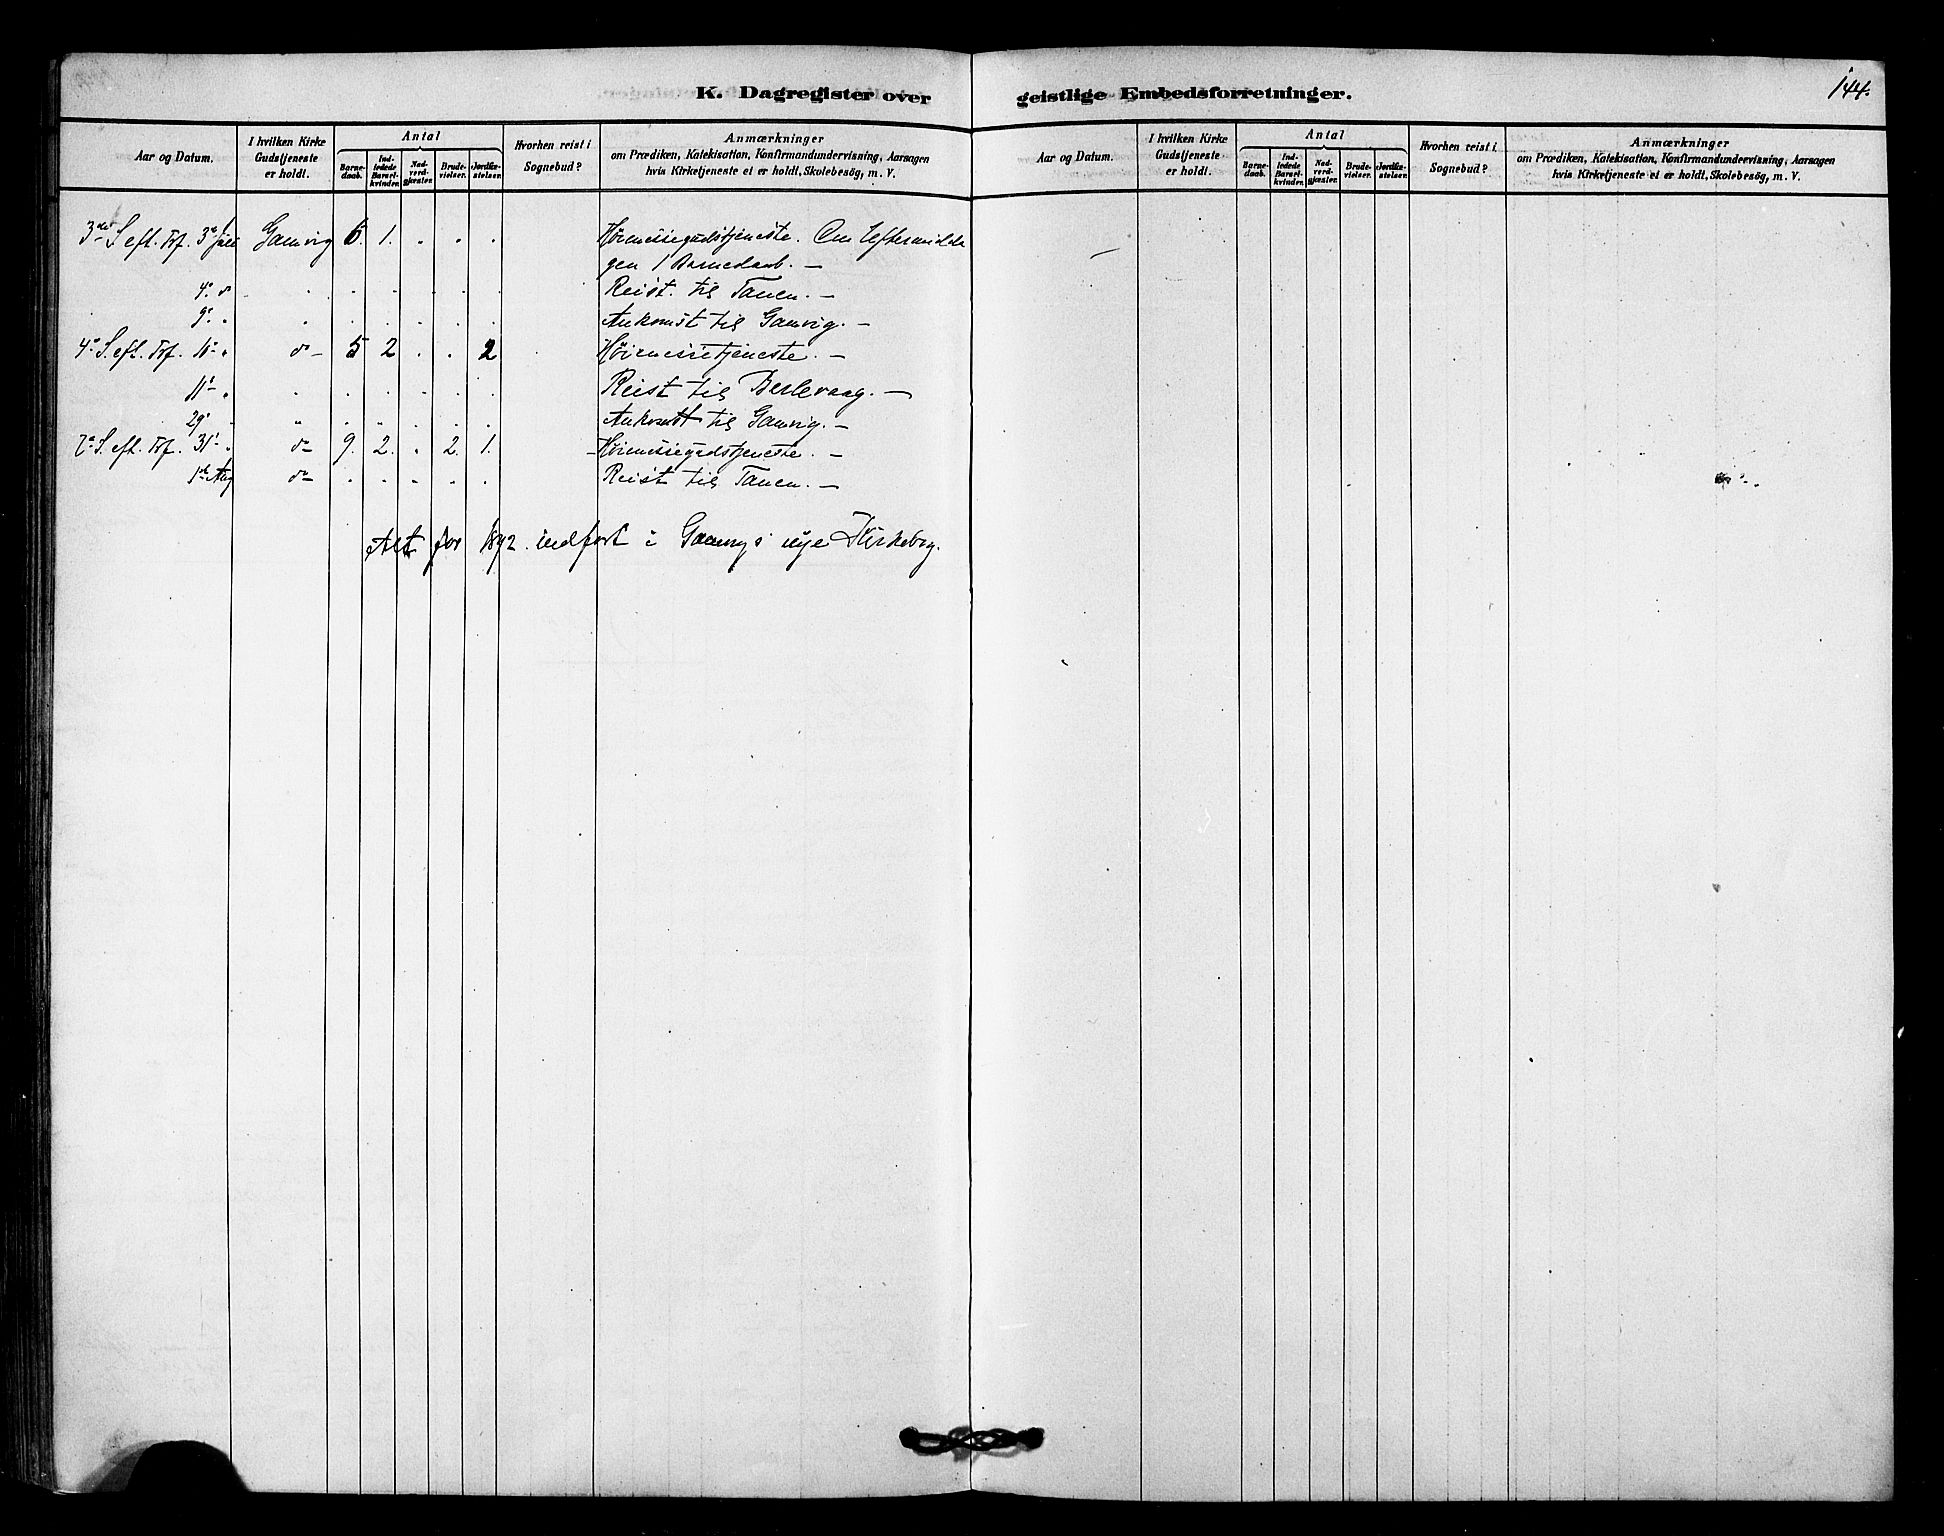 K. Dagregister over geistlige Embedsforretninger.
144.
Aar og Datum. | I hvilken Kirke Gudstjeneste er holdt. | Antal | Barnedaab. | Indledede Barselkvinder. | Nadverdgjæster. | Brudevielser. | Jordfæstelser. | Hvorhen reist i Sognebud? | Anmærkninger om Prædiken, Katekisation, Konfirmandundervisning, Aarsagen hvis Kirketjeneste ei er holdt, Skolebesög, m. V.
Aar og Datum. | I hvilken Kirke Gudstjeneste er holdt. | Antal | Barnedaab. | Indledede Barselkvinder. | Nadverdgjæster. | Brudevielser. | Jordfæstelser. | Hvorhen reist i Sognebud? | Anmærkninger om Prædiken, Katekisation, Konfirmandundervisning, Aarsagen hvis Kirketjeneste ei er holdt, Skolebesög, m. V.
3die S. eft. Trf. 3die Juli Gamvig 6. 1. . . . Høimessegudstjeneste. Om Eftermidda
gen 1 Barnedaab. —
4de do . . . . . . Reist til Tanen. —
9de " . . . . . . Ankomst til Gamvig. —
4de S. eft. Trf. 10de " do — 5 2 . . 2 Høimessetjeneste. —
11te " . . . . . . Reist til Berlevaag. —
29de " " . . . . . Ankomst til Gamvig. —
7de S. eft. Trf. 31te " do 9. 2. . 2. 1. Høimessegudstjeneste. —
1ste Aug do . . . . . Reist til Tanen. —
Alt for 1892 indført i Gamvigs nye Kirkebog.